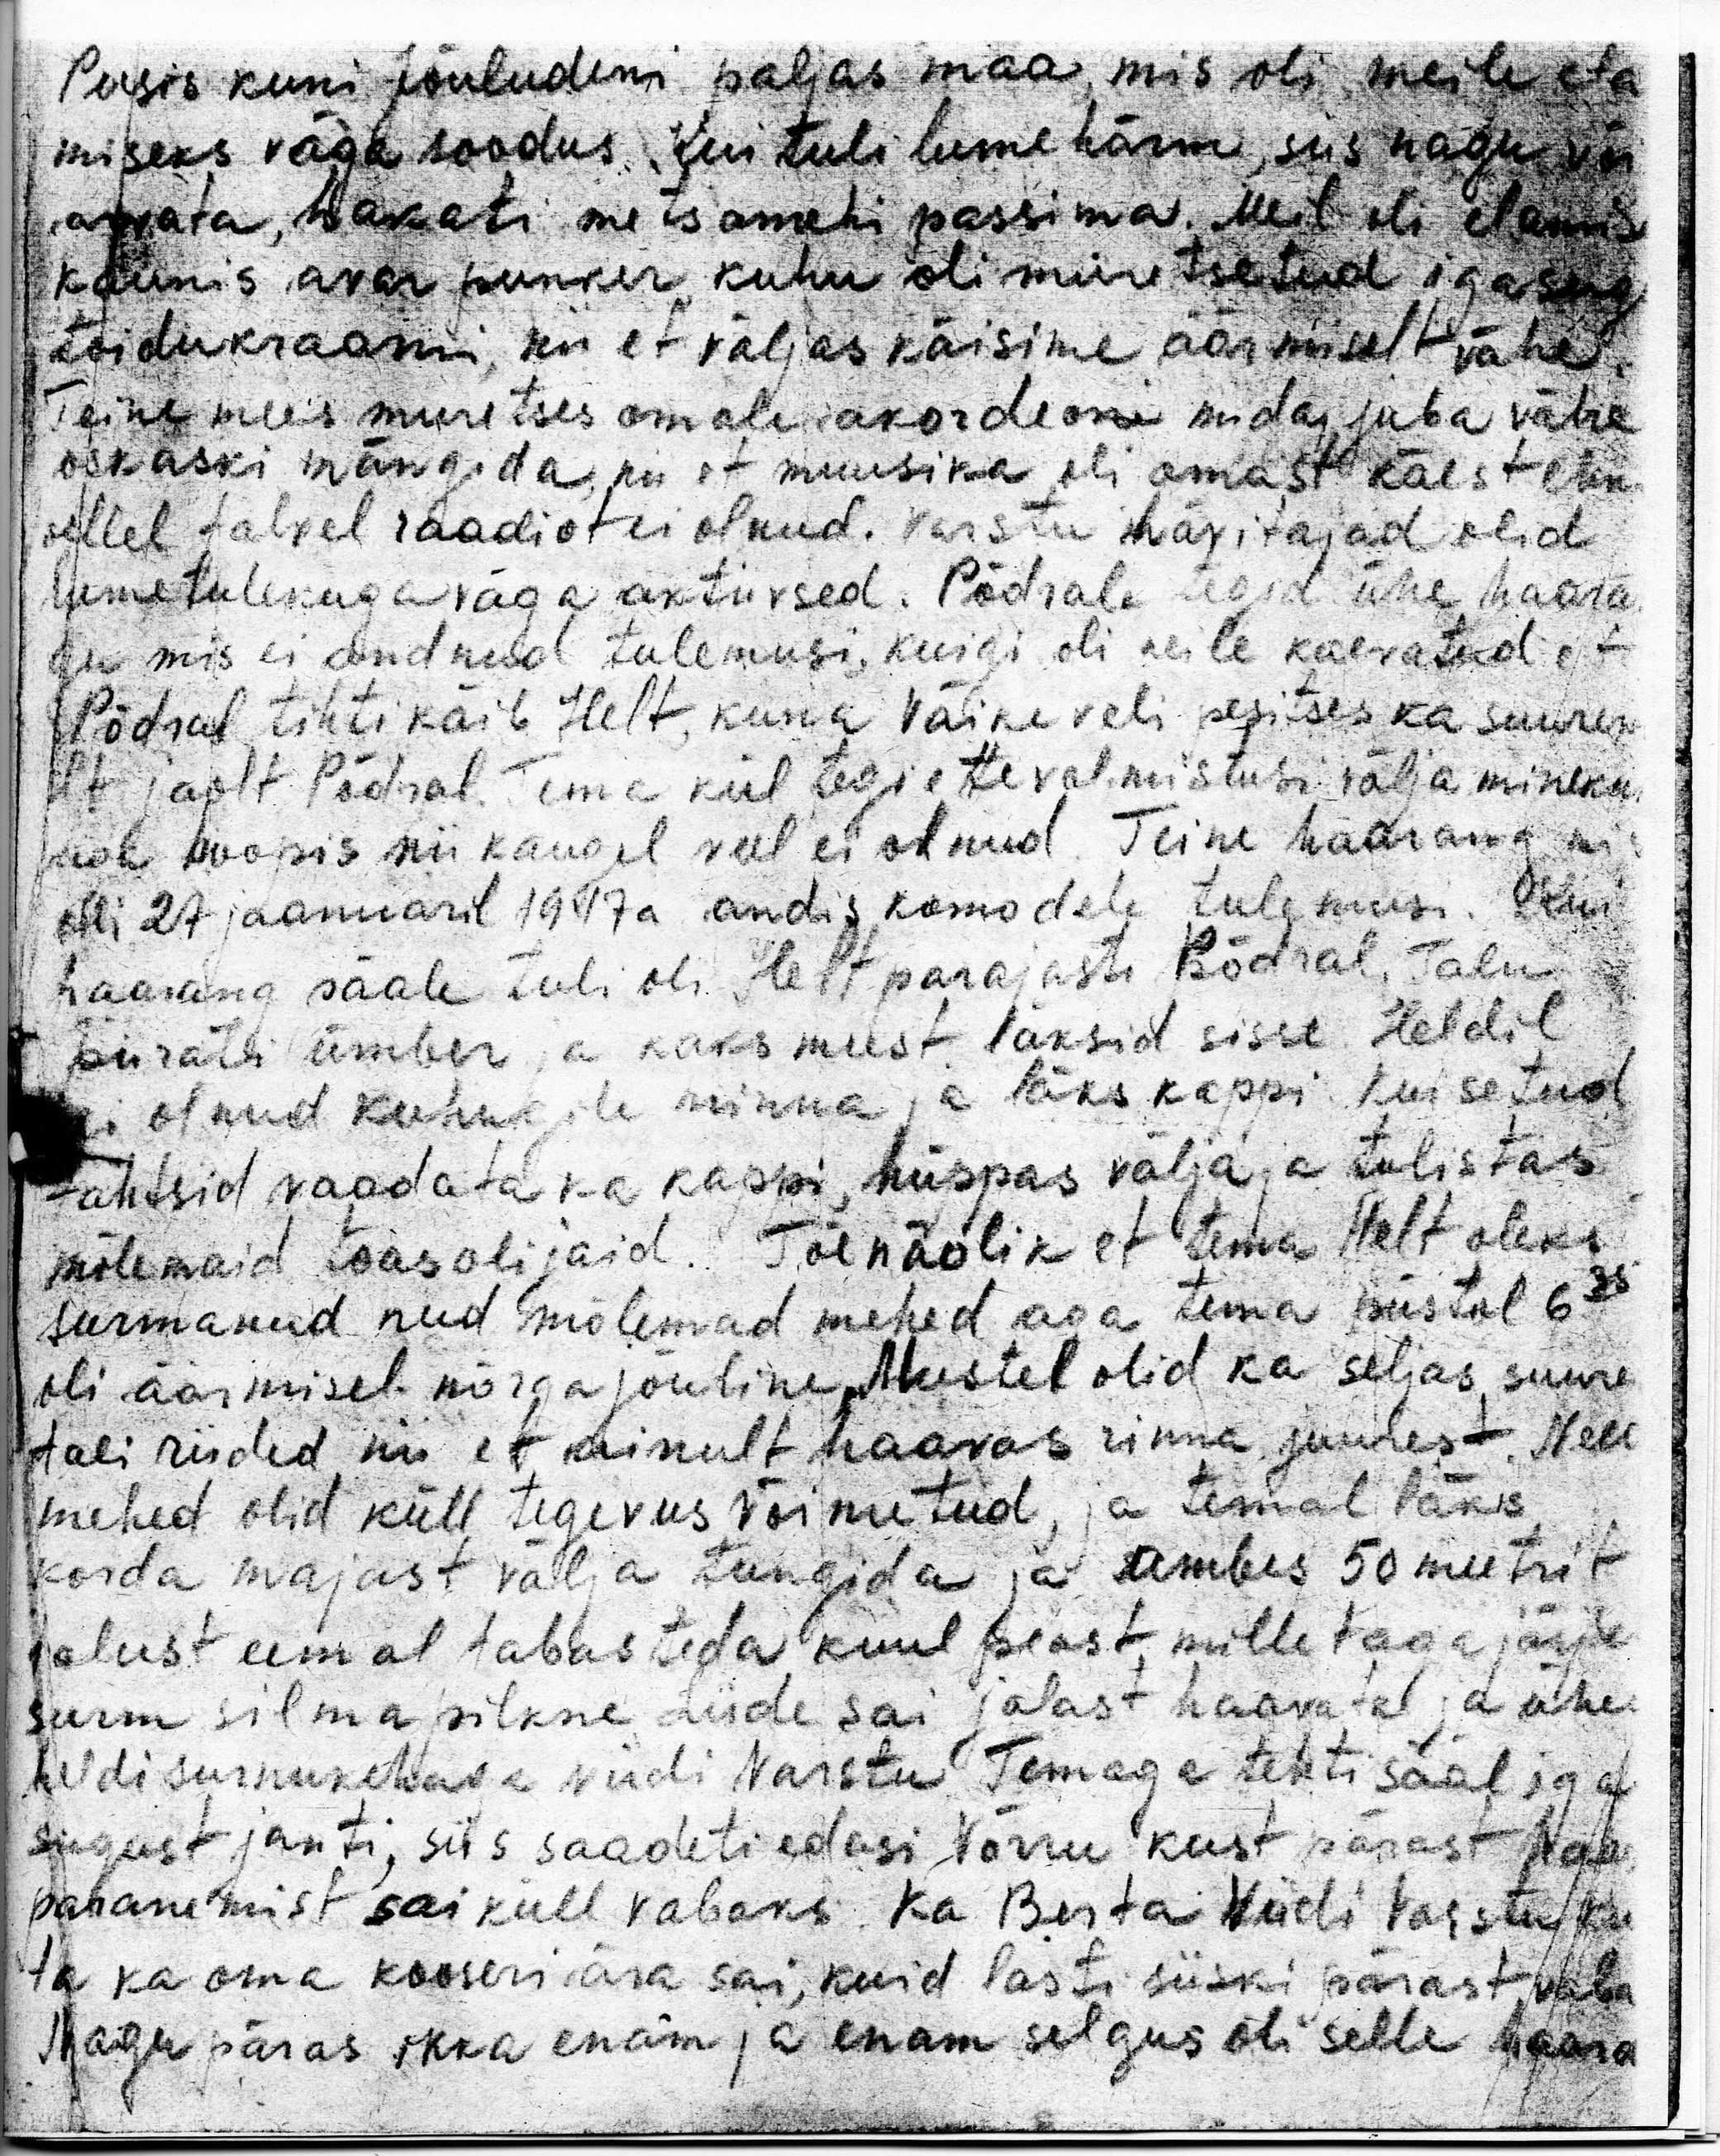 Püsis kuni jõuludeni paljas maa, mis oli meile ela
miseks väga soodus. Kui tuli lumehärm, siis nagu või
arvata, hakati metsamehi passima. Meil oli elamis
kaunis avar punker, kuhu oli müretsetud igasug
toidukraami, nii et väljas käisime äärmiselt vähe.
Teine meis muretses omale akordeoni mida juba vähe
oskaski mängida, nii et muusika oli omast käest ehk
sellel talvel raadiot ei olnud. Varstu hävitajad olid
lumetulekuga väga aktiivsed. Põdrale tegid ühe haara
gu mis ei andnud tulemusi, kuigi oli neile kaevatud et
Põdral tihti käib Helt, kuna Väikeveli pesitses ka suurem
lt jaolt Põdral. Tema kül tegi ettevalmistusi välja mineku
aga hoopis nii kaugel veel ei olnud. Teine haarang mi
oli 27 jaanuaril 1947a andis komodele tulemusi. Kui
haarang pääle tuli oli Helt parajasti Põdral. Talu
piirati ümber ja kaks meest läksid sisse. Heldil
ei olnud kuhugile minna ja läks kappi. Kui setud
tahtsid vaadata ka kappi, hüppas välja ja tulistas
mõlemaid toas olijaid. Tõenäolik et tema Helt oleks
surmanud need mõlemad mehed aga tema püstol 6 35
oli äärmisel nõrgajõuline. Meestel olid ka seljas suure
tali riided nii et ainult haavas rinna juurest. Nee
mehed olid küll tegevusvõimetud, ja temal läks
korda majast välja tungida ja umbes 50 meetrit
talust eemal tabas teda kuul peast, mille tagajärje
surm silmapilkne. Liide sai jalast haavata ja ühe
heldi surnukehaga viidi Varstu. Temaga tehti sääl iga
sugust janti, siis saadeti edasi Võrru kust pärast
paranemist sai küll vabaks. Ka Berta Viidi Varstu ku
ta ka oma kooseri ära sai, kuid lasti siiski pärast vaba
Nagu päras ikka enam ja enam selgus oli selle haara